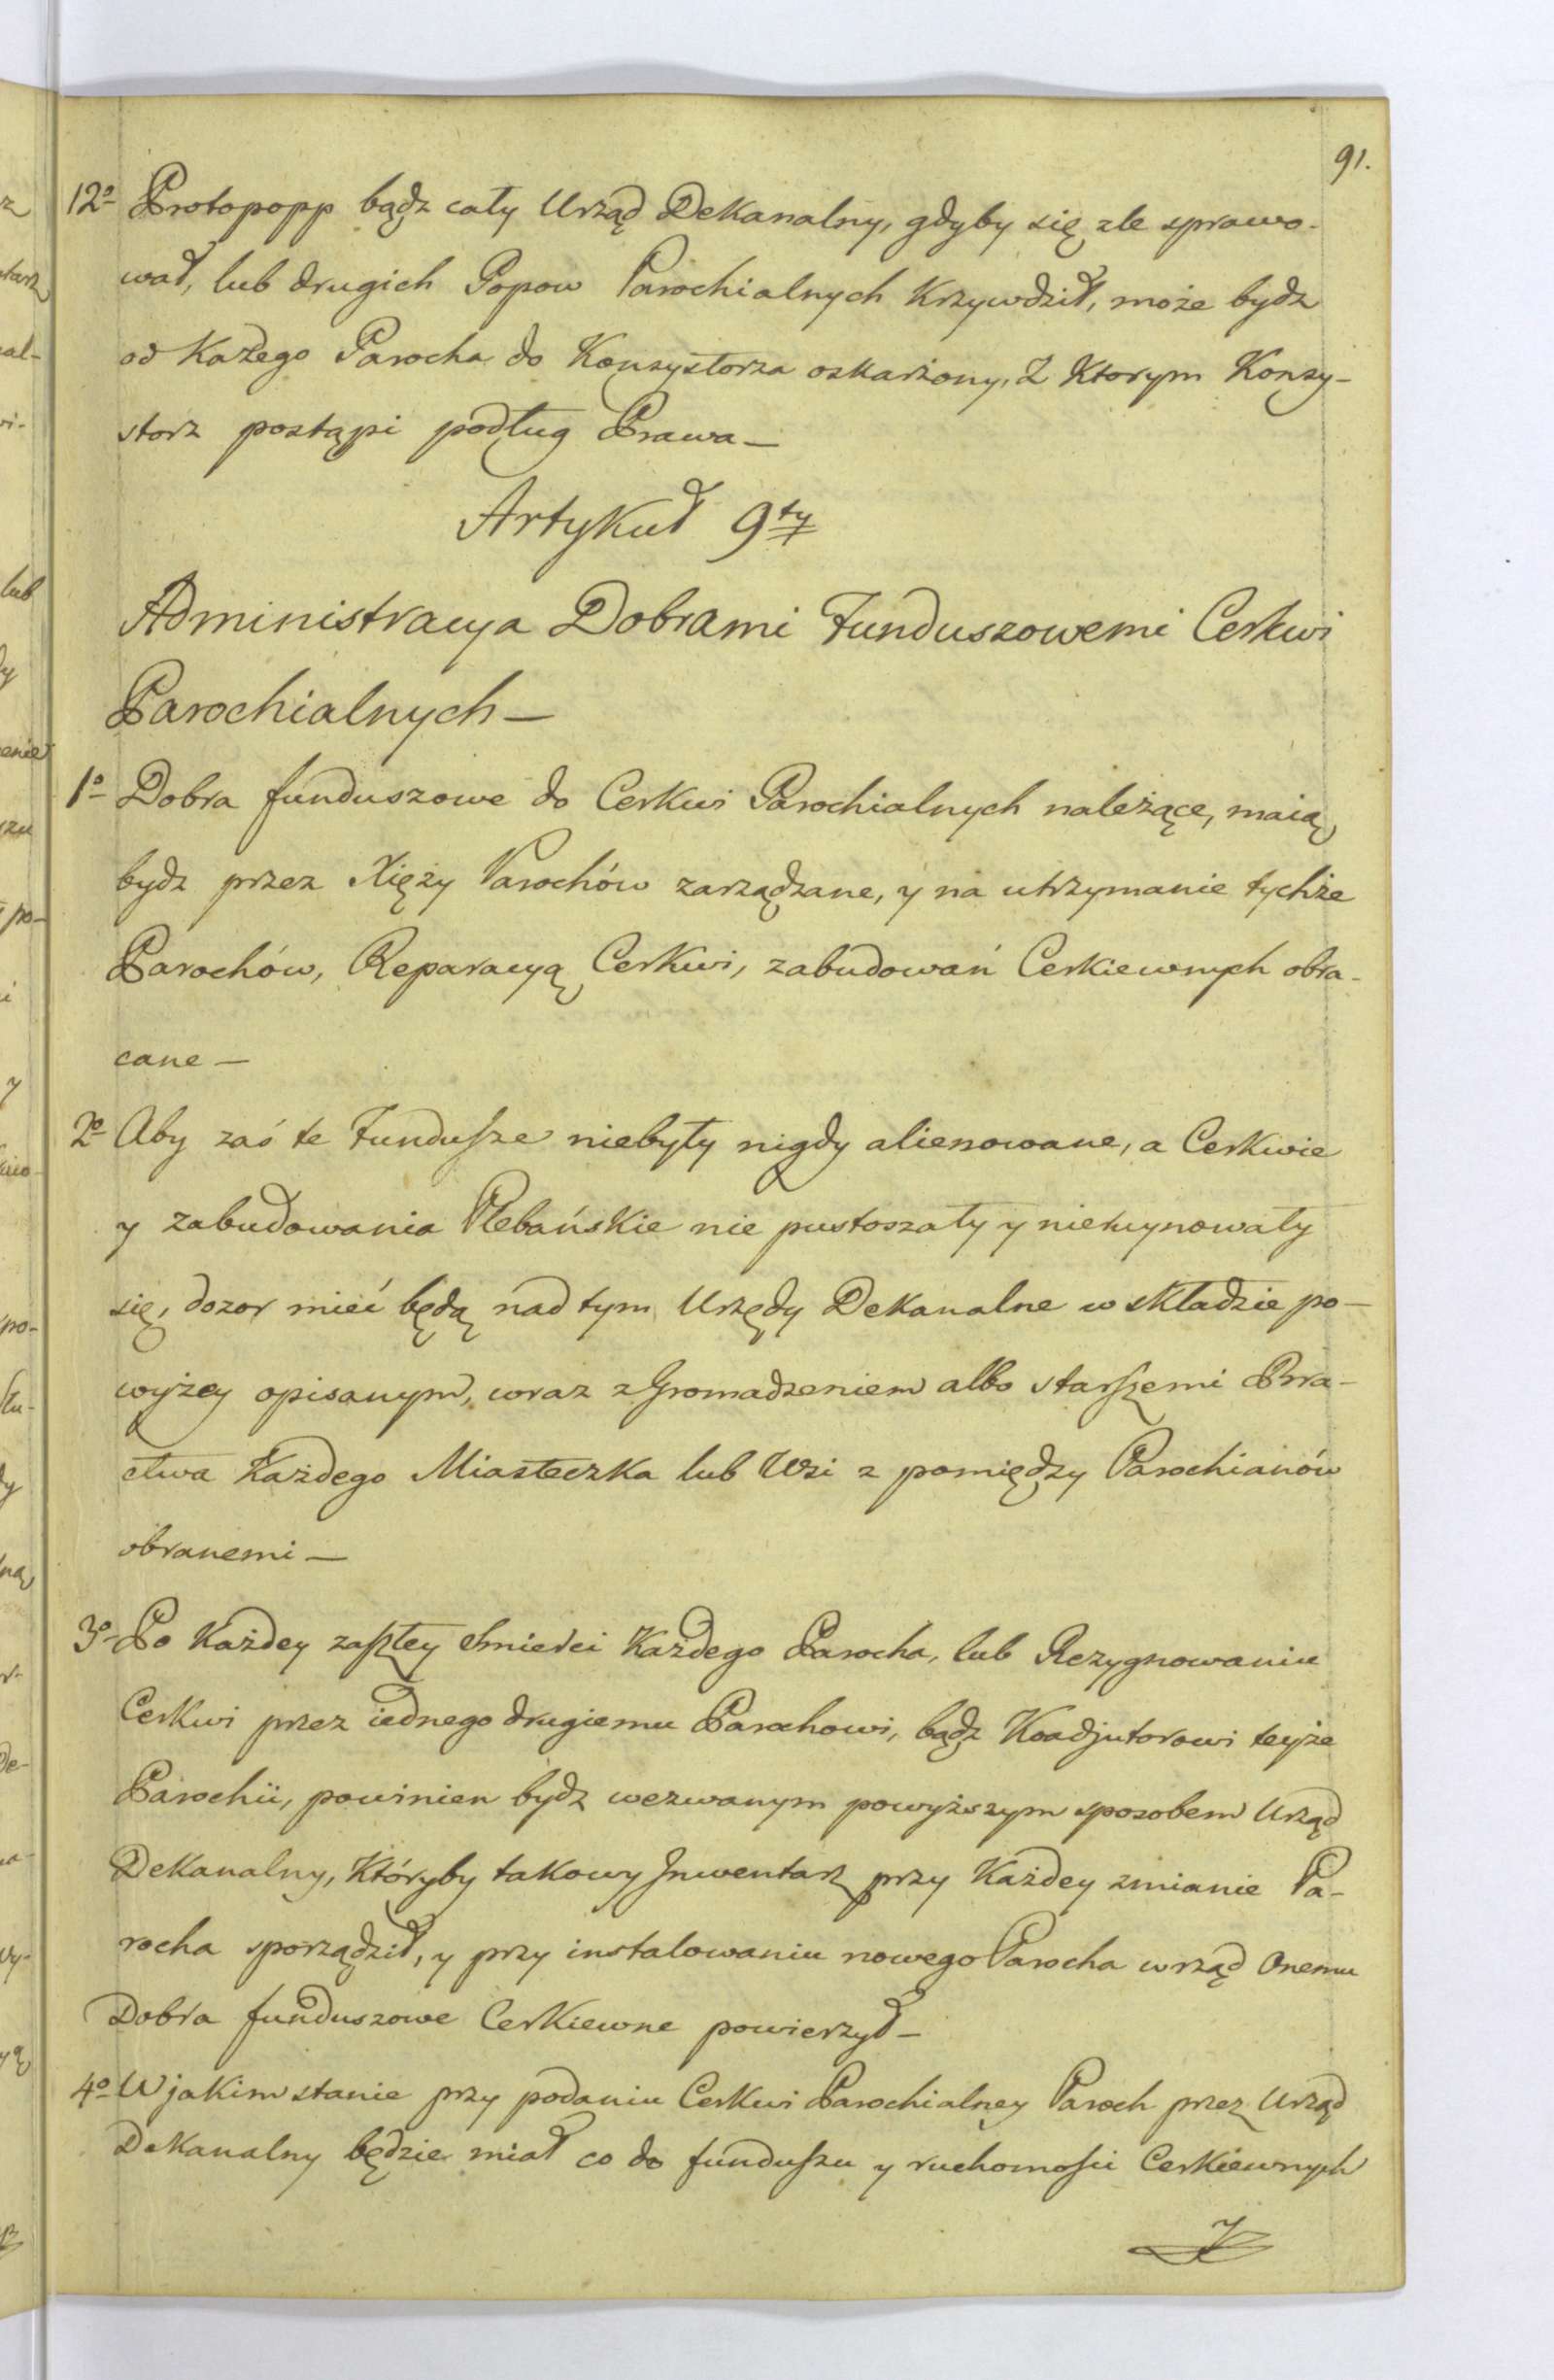 91.
12o Protopopp bądz cały Urząd Dekanalny, gdyby się zle sprawo-
wał, lub drugich Popow Parochialnych Krzywdził, może bydz
od Każego Parocha do Konsystorza oskarżony, Z Ktorym Konsy-
storz postąpi podług Prawa —
Artykuł 9ty
Administracya Dobrami Funduszowemi Cerkwi
Parochialnych —
1o Dobra funduszowe do Cerkwi Parochialnych należące, maią
bydz przez Xięży Parochów zarządzane, y na utrzymanie tychże
Parochów, Reparacyą Cerkwi, zabudowań Cerkiewnych obra-
cane —
2o Aby zaś te Fundusze niebyły nigdy alienowane, a Cerkwie
y zabudowania Plebańskie nie pustoszały y nieruynowały
się, dozor mieć będą nad tym Urzędy Dekanalne w składzie po-
wyżey opisanym, wraz zgromadzeniem albo starszemi Bra-
ctwa Każdego Miasteczka lub Wsi z pomiędzy Parochianów
obranemi —
3o Po Każdey zaszłey śmierci Każdego Parocha, lub Rezygnowaniu
Cerkwi przez iednego drugiemu Parochowi, bądz Koadjutorowi teyże
Parochii, powinien bydz wezwanym powyższym sposobem Urząd
Dekanalny, Któryby takowy Inwentarz przy Każdey zmianie Pa-
rocha sporządził, y przy instalowaniu nowego Parocha wrząd onemu
Dobra funduszowe Cerkiewne powierzył —
4o W jakim stanie przy podaniu Cerkwi Parochialney Paroch przez Urząd
Dekanalny będzie miał co do funduszu y ruchomości Cerkiewnych